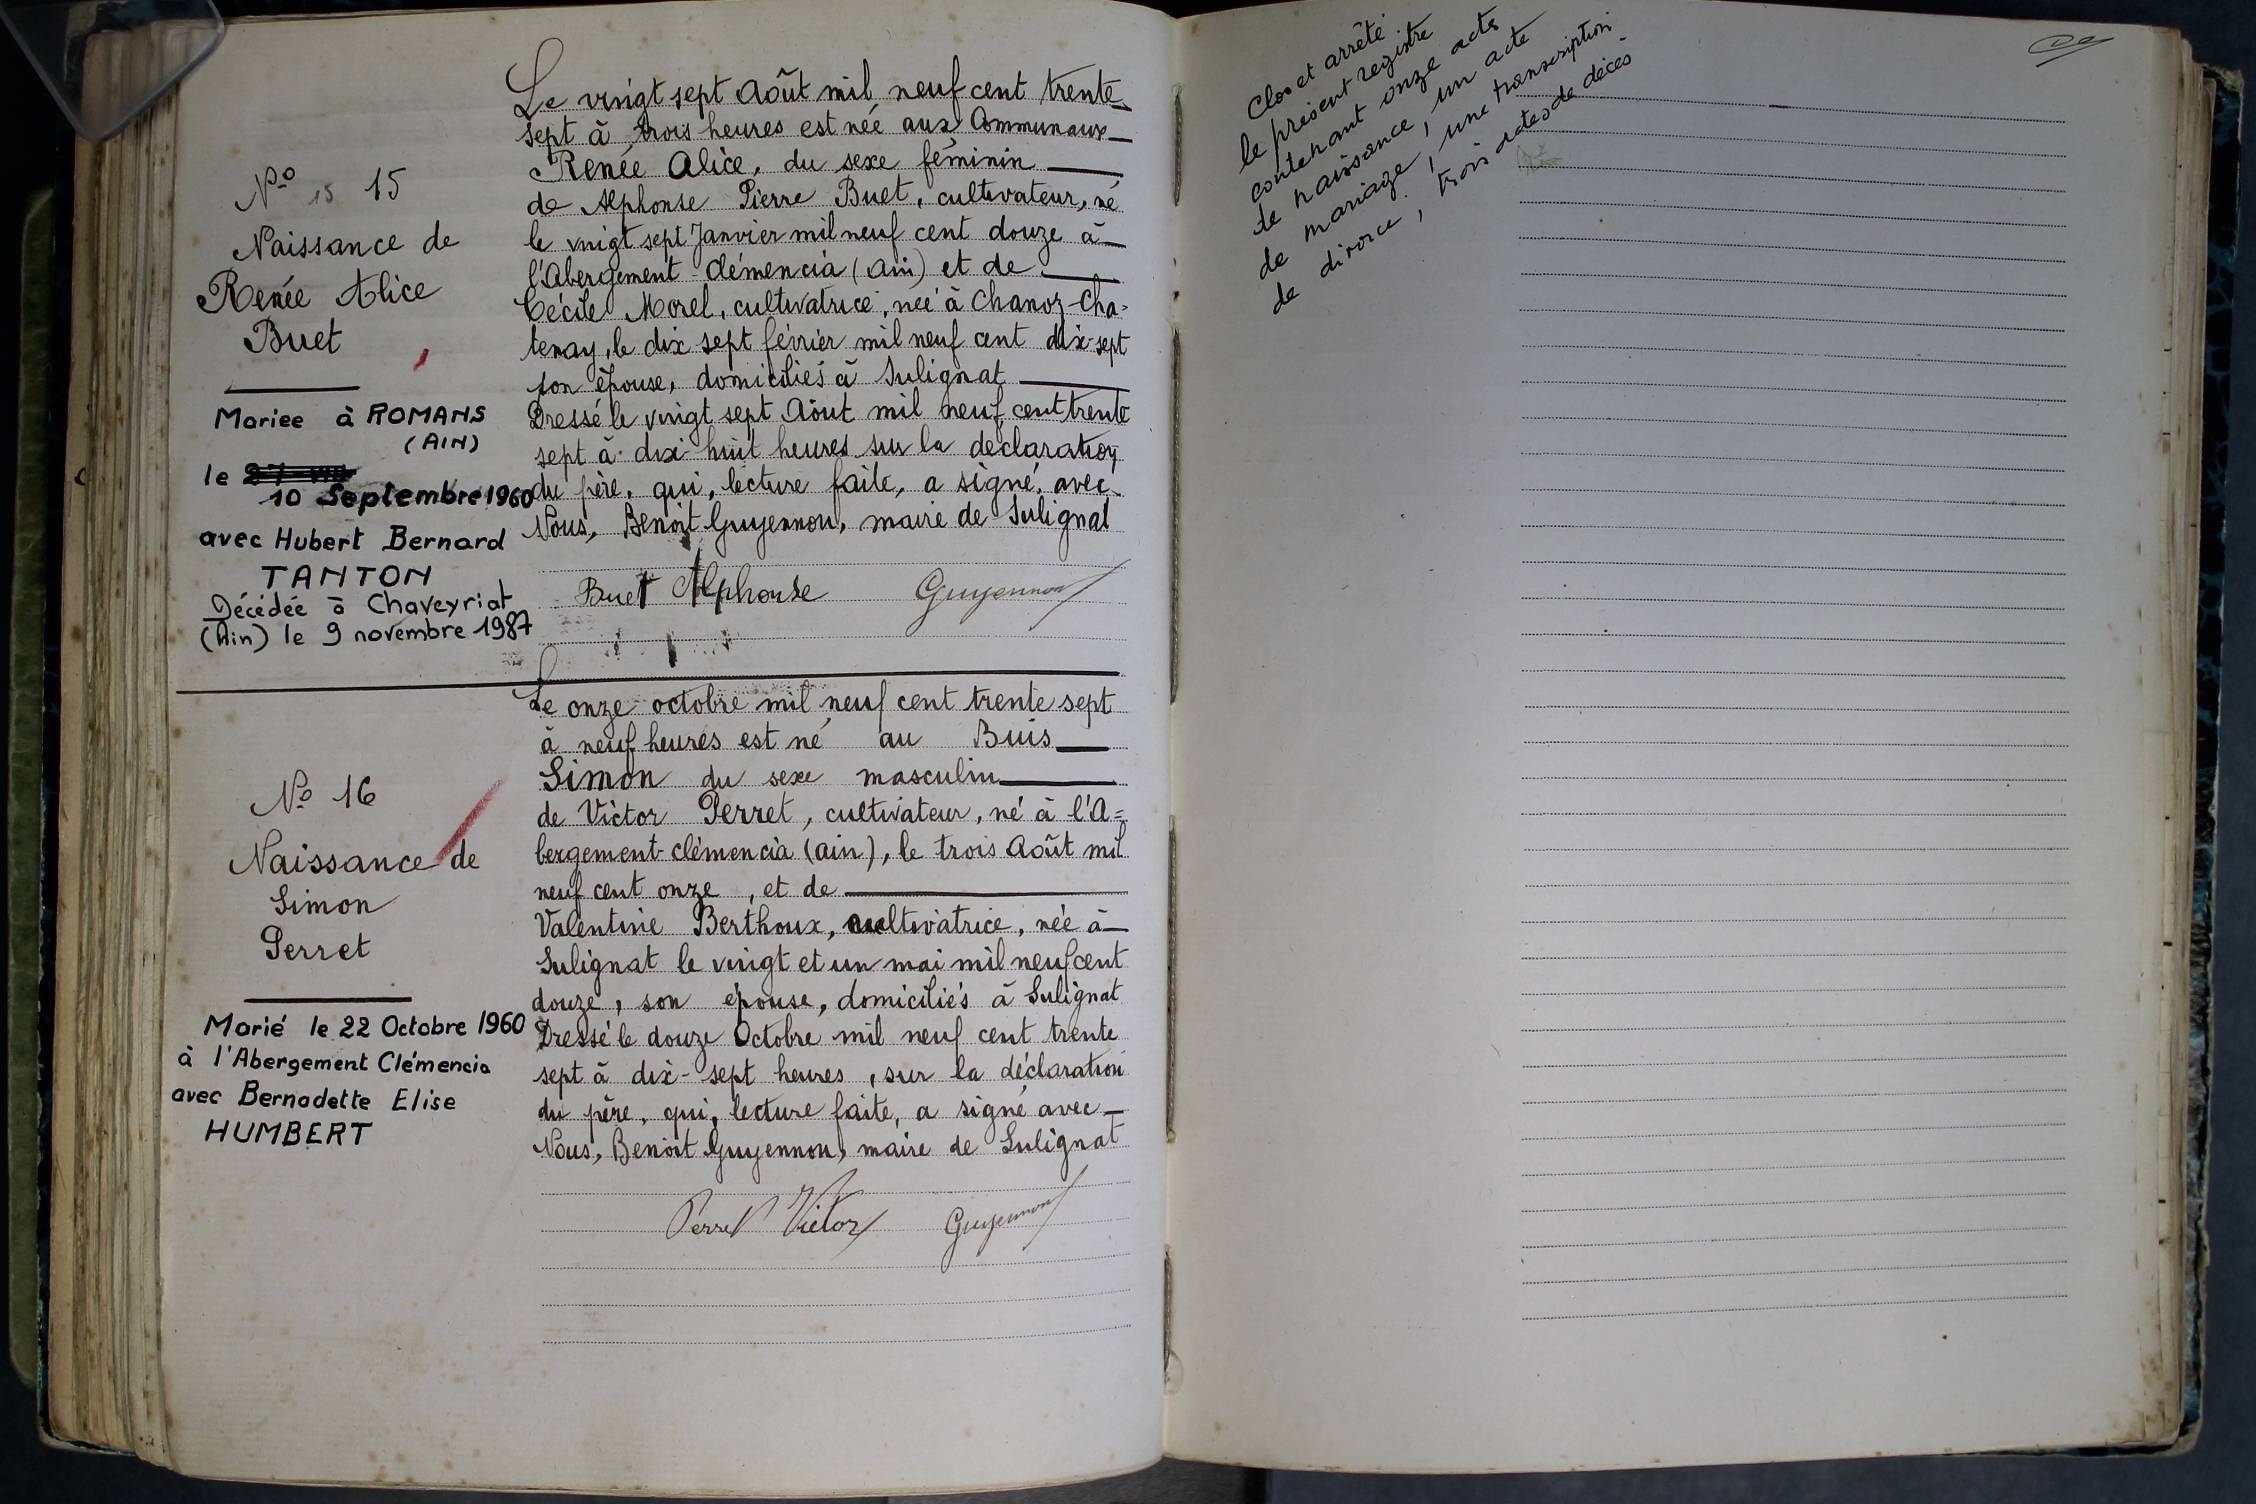 No 15 15
Naissance de
Renée Alice
Buet
Mariee à ROMANS
(AIN)
le
10 Septembre 1960
avec Hubert Bernard
TANTON
Décédée à Chaveyriat
(Ain) le 9 novembre 1987
Le vingt sept Août mil neuf cent trente
sept à trois heures est née aux Communaux
Renée Alice, du sexe féminin
de Alphonse Pierre Buet, cultivateur, né
le vingt sept Janvier mil neuf cent douze à
l'Abergement-Clémencia (Ain) et de
Cécile Morel, cultivatrice, née à Chanoz-Cha-
tenay, le dix sept février mil neuf cent dix-sept
son épouse, domiciliés à Sulignat
Dressé le vingt sept Août mil neuf cent trente
sept à dix-huit heures sur la déclaration
du père, qui, lecture faite, a signé, avec
Nous, Benoit Guyennon, maire de Sulignat
Buet Alphonse Guyennon
No 16
Naissance de
Simon
Perret
Marié le 22 Octobre 1960
à l'Abergement Clémencia
avec Bernadette Elise
HUMBERT
Le onze octobre mil neuf cent trente sept
à neuf heures est né au Buis
Simon du sexe masculin
de Victor Perret, cultivateur, né à l'A=
bergement-clémencia (ain), le trois Août mil
neuf cent onze, et de
Valentine Berthoux, cultivatrice, née à
Sulignat le vingt et un mai mil neuf cent
douze, son épouse, domiciliés à Sulignat
Dressé le douze Octobre mil neuf cent trente
sept à dix-sept heures, sur la déclaration
du père, qui, lecture faite, a signé avec
Nous, Benoit Guyennon, maire de Sulignat
Perret Victor Guyennon
Clos et arrêté
le présent registre
contenant onze acts
de naissance, un acte
de mariage, une transcription
de divorce, trois actes de décès